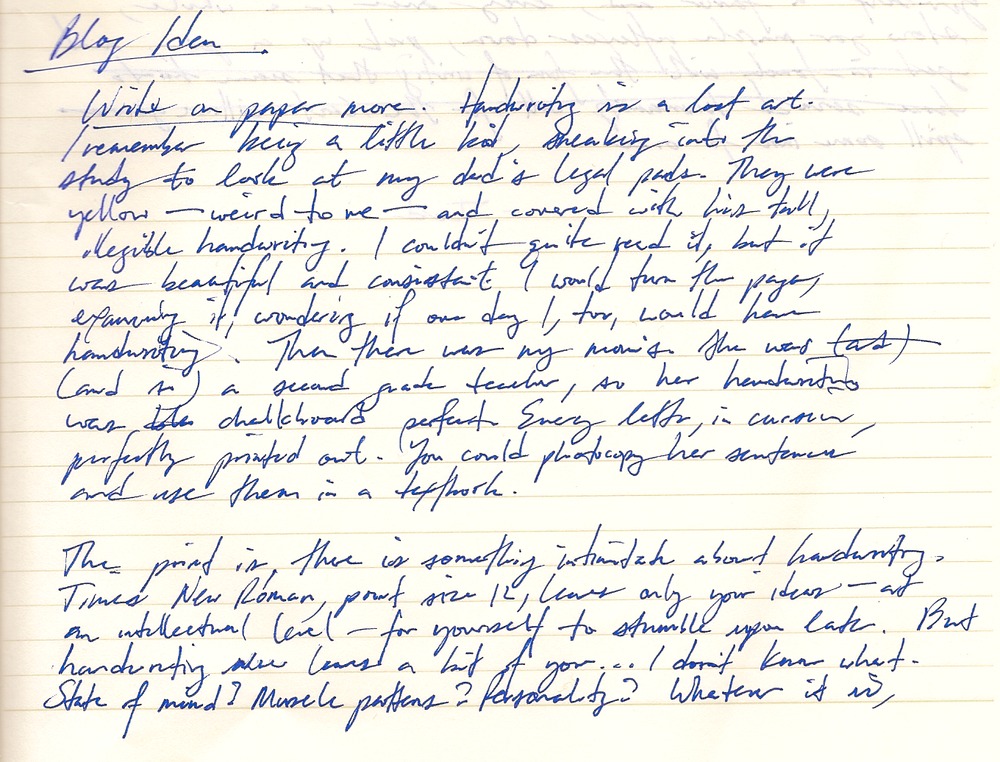 Blog Idea.
Write on paper more. Handwriting is a lost art.
I remember being a little kid, sneaking into the
study to look at my dad's legal pads. They were
yellow — weird to me — and covered with his tall,
illegible handwriting. I couldn't quite read it, but it
was beautiful and consistent. I would turn the pages,
examining it, wondering if one day I, too, would have
handwriting. Then there was my mom's. She was (and)
(and is) a second grade teacher, so her handwriting
was chalkboard perfect. Every letter, in cursive,
perfectly printed out. You could photocopy her sentences
and use them in a textbook.
The point is, there is something intimate about handwriting.
Times New Roman, point size 12, leaves only your ideas — at
an intellectual level — for yourself to stumble upon later. But
handwriting also leaves a bit of you... I don't know what.
State of mind? Muscle patterns? Personality? Whatever it is,